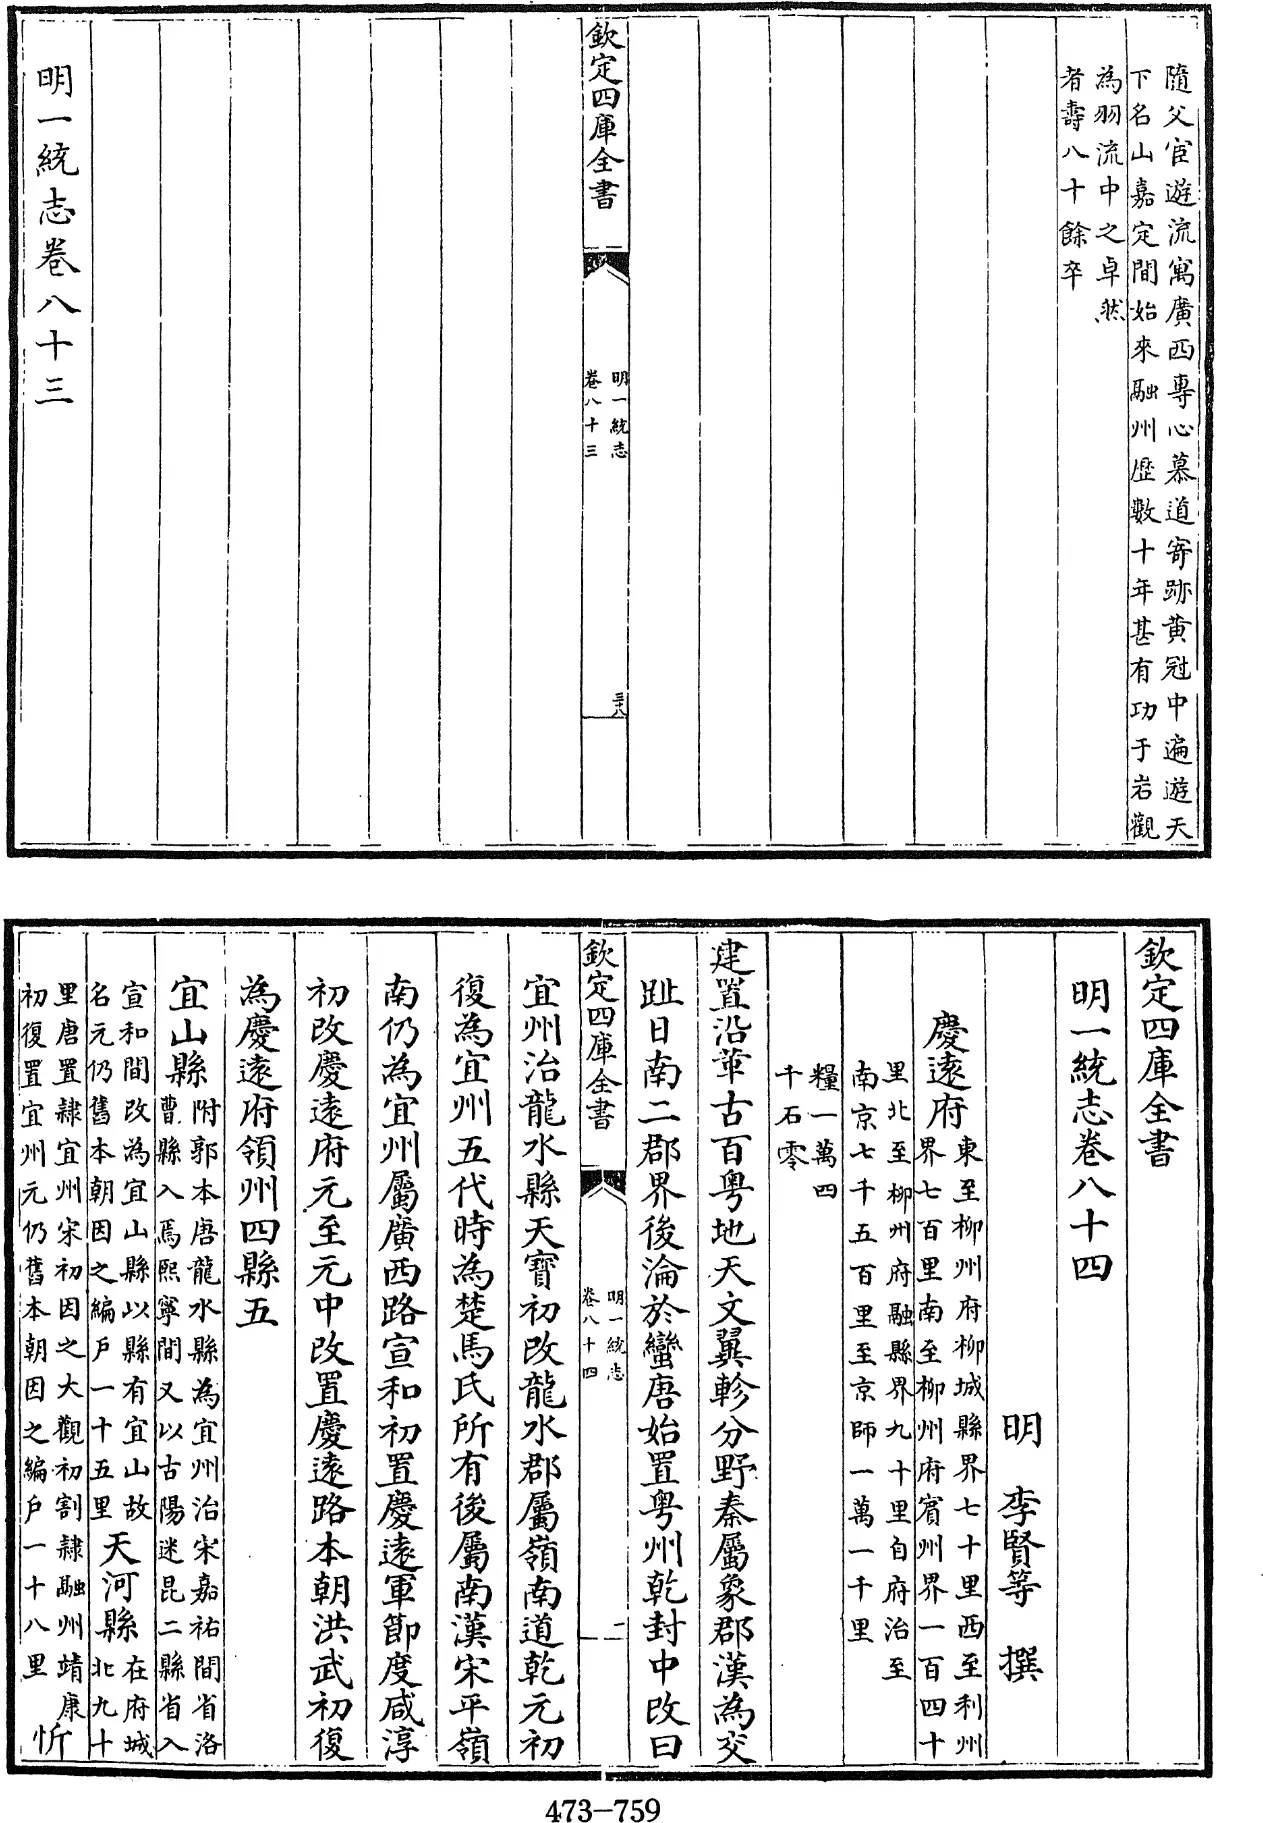 隨父宦遊流寓廣西專心慕道寄跡黄冠中遍遊天
下名山嘉定間始來融州歴數十年甚有功于岩觀
為羽流中之卓然
者壽八十餘卒
欽定四庫全書
明一統志
卷八十三
三十八
明一統志卷八十三
欽定四庫全書
明一統志卷八十四
明 李賢等 撰
慶遠府
東至柳州府柳城縣界七十里西至利州
界七百里南至柳州府賓州界一百四十
里北至柳州府融縣界九十里自府治至
南京七千五百里至京師一萬一千里
糧一萬四
千石零
建置沿革古百粤地天文翼軫分野秦屬象郡漢為交
趾日南二郡界後淪於蠻唐始置粤州乾封中改曰
欽定四庫全書
明一統志
卷八十四
一
宜州治龍水縣天寳初改龍水郡屬嶺南道乾元初
復為宜州五代時為楚馬氏所有後屬南漢宋平嶺
南仍為宜州屬廣西路宣和初置慶遠軍節度咸淳
初改慶遠府元至元中改置慶遠路本朝洪武初復
為慶遠府領州四縣五
宜山縣
附郭本唐龍水縣為宜州治宋嘉祐間省洛
曹縣入焉熙寧間又以古陽迷昆二縣省入
宣和間改為宜山縣以縣有宜山故
名元仍舊本朝因之編户一十五里
天河縣
在府城
北九十
里唐置隷宜州宋初因之大觀初割隷融州靖康
初復置宜州元仍舊本朝因之編户一十八里
忻
473-759